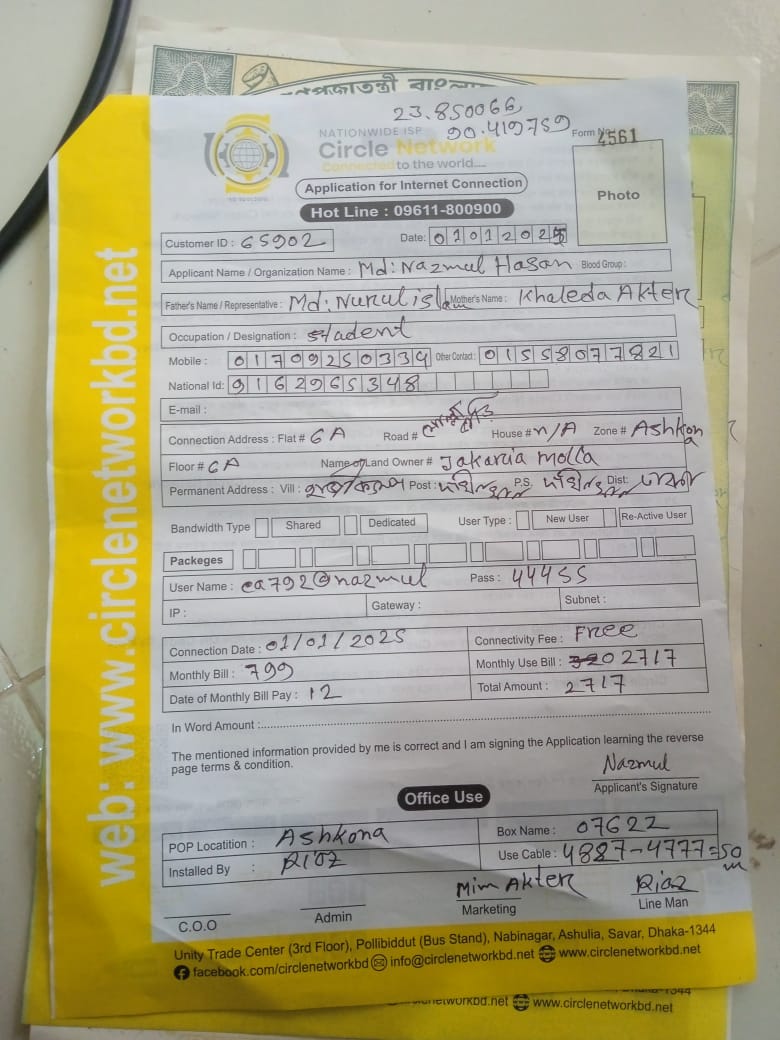 গণপ্রজাতন্ত্রী বাংলা
23.850066,
90.419759
NATIONWIDE ISP
Form No 4561
Circle Network
Connected to the world....
Application for Internet Connection
Photo
Hot Line : 09611-800900
Customer ID : 65902 Date: 01012025
Applicant Name / Organization Name : Md: Nazmul Hasan Blood Group :
Father's Name / Representative : Md: Nurul islam Mother's Name : Khaleda Akter
Occupation / Designation : student
Mobile : 01709250334 Other Contact : 01558077821
National Id: 9162965348
E-mail :
Connection Address : Flat # 6A Road # House # N/A Zone # Ashkona
Floor # 6A Name of Land Owner # Jakaria Molla
Permanent Address : Vill : Post : P.S. Dist:
Bandwidth Type Shared Dedicated User Type : New User Re-Active User
Packeges
User Name : ca792@nazmul Pass : 44455
IP : Gateway : Subnet :
Connection Date : 01/01/2025 Connectivity Fee : Free
Monthly Bill : 799 Monthly Use Bill : 2717
Date of Monthly Bill Pay : 12 Total Amount : 2717
In Word Amount :
The mentioned information provided by me is correct and I am signing the Application learning the reverse
page terms & condition.
Nazmul
Applicant's Signature
Office Use
POP Locatition : Ashkona Box Name : 07622
Installed By : Riaz Use Cable : 4827-4777=50m
Mim Akter Riaz
C.O.O Admin Marketing Line Man
Unity Trade Center (3rd Floor), Pollibiddut (Bus Stand), Nabinagar, Ashulia, Savar, Dhaka-1344
facebook.com/circlenetworkbd info@circlenetworkbd.net www.circlenetworkbd.net
web: www.circlenetworkbd.net
www.circlenetworkbd.net